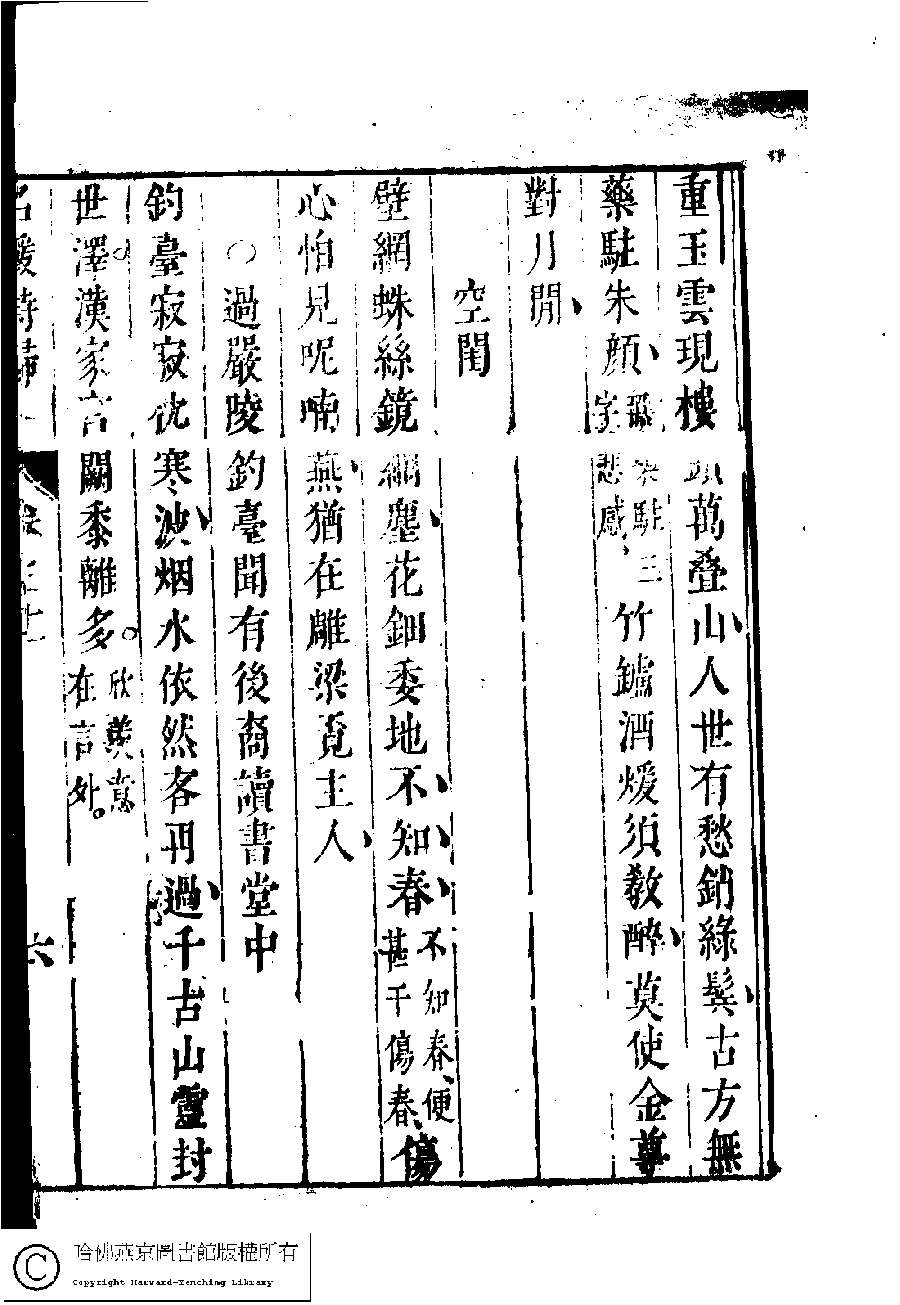 重玉雲現樓頭萬叠山人世有愁銷綠鬂古方無
藥駐朱顏無藥駐三字悲感竹鑪酒煖須敎醉莫使金尊
對月閒
空閨
壁網蛛絲鏡網塵花鈿委地不知春不知春便甚于傷春傷
心怕見呢喃燕猶在雕梁覓主人
○過嚴陵釣臺聞有後裔讀書堂中
釣臺寂寂枕寒波烟水依然客再過千古山靈封
世澤漢家宮闕黍離多欣羨意在言外
名媛詩歸 六
哈佛燕京圖書館版權所有
Copyright Harvard-Yenching Library